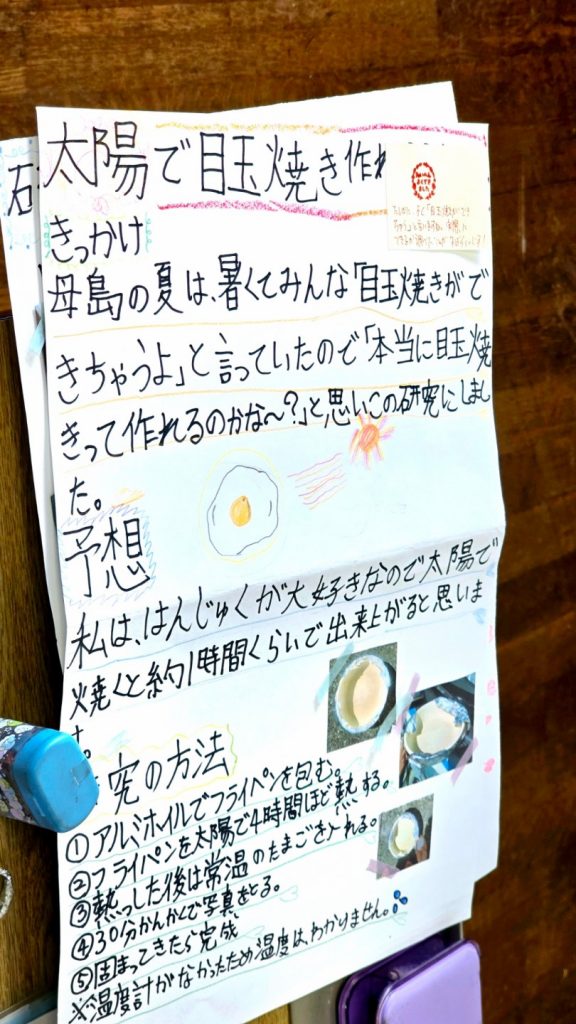 太陽で目玉焼き作れ
きっかけ
母島の夏は、暑くてみんな「目玉焼きがで
きちゃうよ」と言っていたので「本当に目玉焼
きって作れるのかな〜?」と思いこの研究にしまし
た。
予想
私は、はんじゅくが大好きなので太陽で
焼くと約1時間くらいで出来上がると思いま
す。
究の方法
①アルミホイルでフライペンを包む。
②フライペンを太陽で4時間ほど熱する。
③熱っした後は常温のたまごを入れる。
④30分かんかくで写真をとる。
⑤固まってきたら完成
※温度計がなかったため温度は、わかりません。